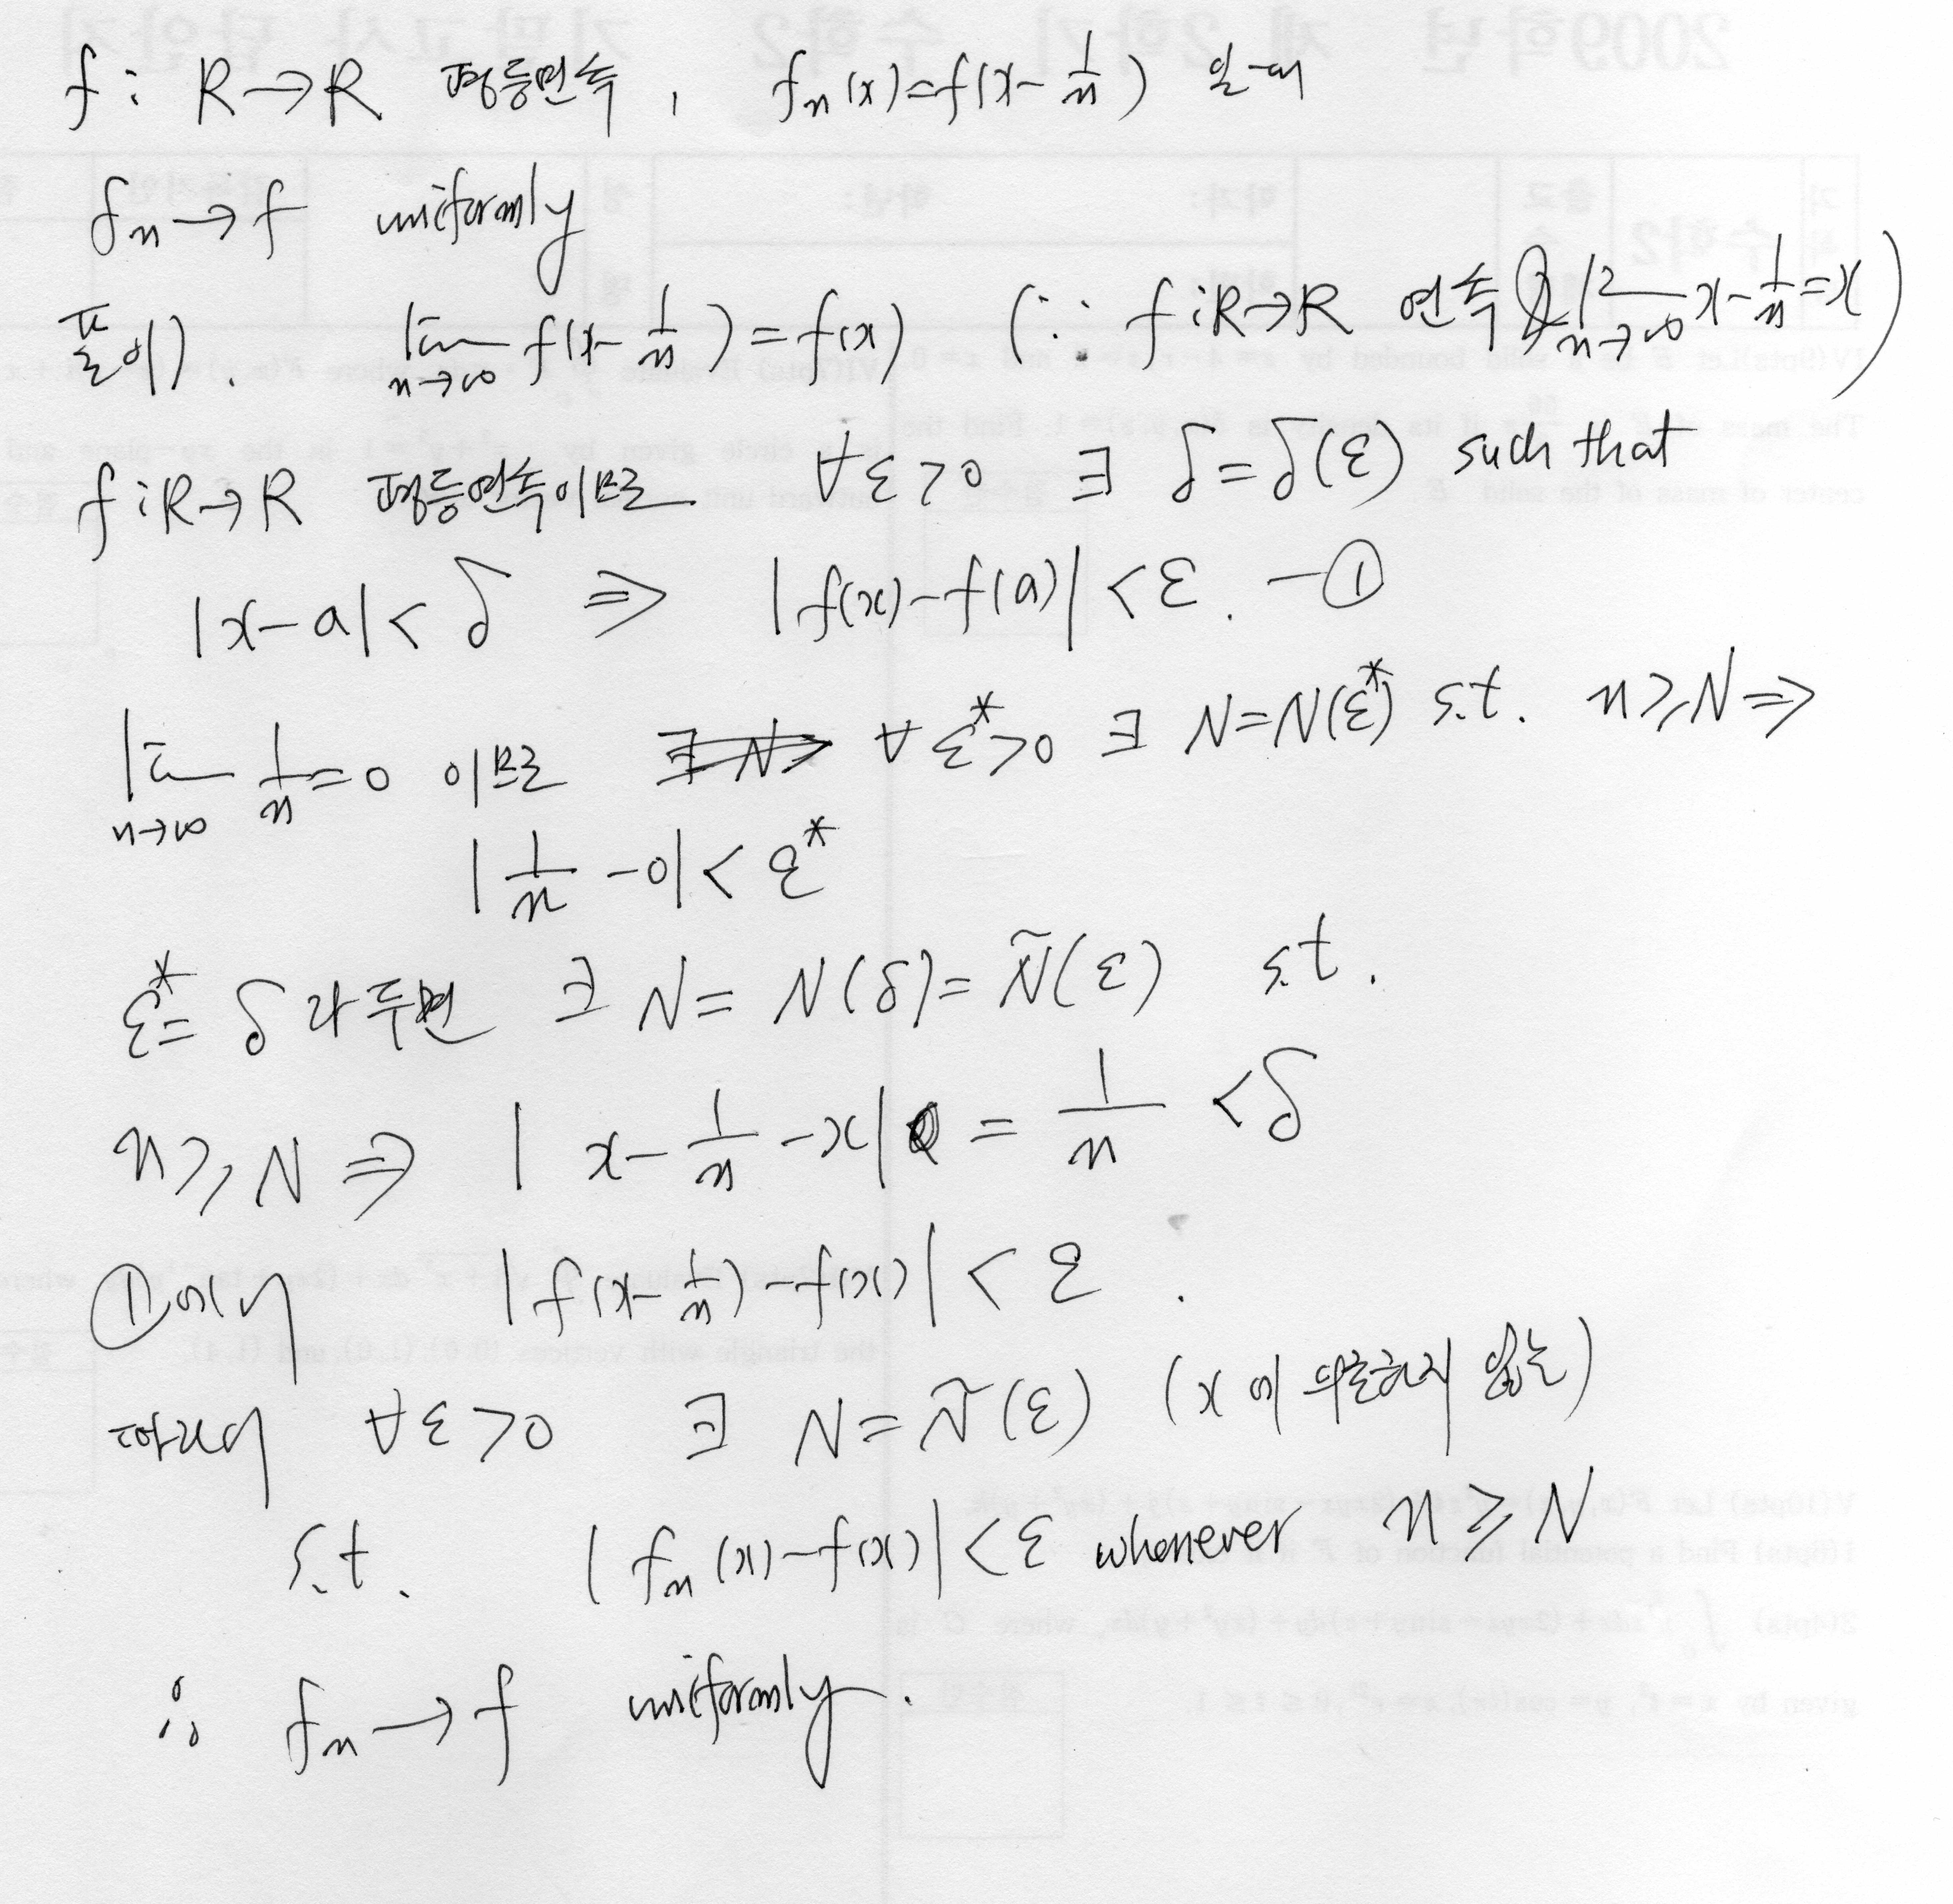 f : R → R 평등연속, fₙ(x) = f(x - 1/n) 일 때
fₙ → f uniformly
풀이). lim_{n→∞} f(x - 1/n) = f(x) (∵ f : R → R 연속 & lim_{n→∞} x - 1/n = x)
f : R → R 평등연속이므로 ∀ε > 0 ∃ δ = δ(ε) such that
|x - a| < δ ⇒ |f(x) - f(a)| < ε. —①
lim_{n→∞} 1/n = 0 이므로 ∀ε* > 0 ∃ N = N(ε*) s.t. n ≥ N ⇒
|1/n - 0| < ε*
ε* = δ 라 두면 ∃ N = N(δ) = Ñ(ε) s.t.
n ≥ N ⇒ |x - 1/n - x| = 1/n < δ
①에서 |f(x - 1/n) - f(x)| < ε.
따라서 ∀ε > 0 ∃ N = Ñ(ε) (x에 의존하지 않는)
s.t. |fₙ(x) - f(x)| < ε whenever n ≥ N
∴ fₙ → f uniformly.